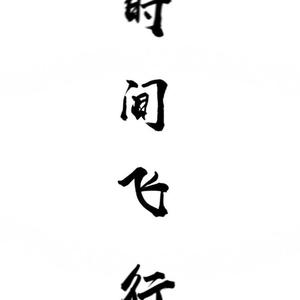 时间飞行